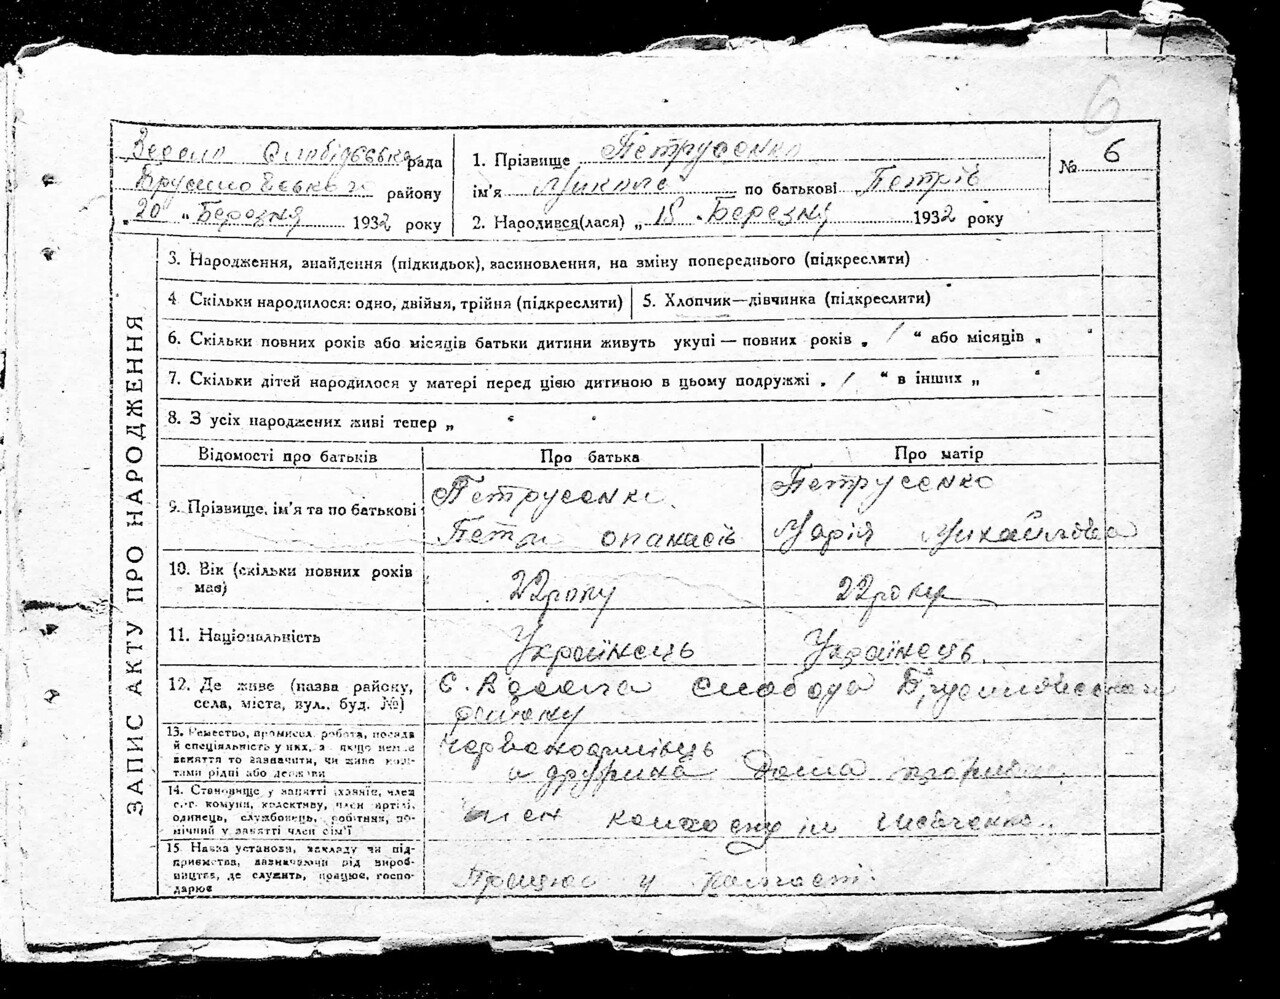 6
рада
району
„20 “ Березня 1932 року
1. Прізвище Петрусенко
ім'я Микола по батькові Петрів
2. Народився(лася) „ 18 “ Березня 1932 року
№ 6
ЗАПИС АКТУ ПРО НАРОДЖЕННЯ
3. Народження, знайдення (підкидьок), всиновлення, на зміну попереднього (підкреслити)
4 Скільки народилося: одно, двійня, трійня (підкреслити)
5. Хлопчик—дівчинка (підкреслити)
6. Скільки повних років або місяців батьки дитини живуть укупі — повних років „ / “ або місяців „ “
7. Скільки дітей народилося у матері перед цією дитиною в цьому подружжі „ / “ в інших „ “
8. З усіх народжених живі тепер „ “
Відомості про батьків Про батька Про матір
9. Прізвище, ім'я та по батькові
Петрусенко
Петро опанасів
Петрусенко
Марія Михайлівна
10. Вік (скільки повних років
має)
22 року
22 року
11. Національність
Українець
Українець
12. Де живе (назва району,
села, міста, вул., буд. №)
С. слобода
району
13. Ремество, промисел, робота, посада
й спеціяльність у них, а якщо немає
заняття то зазначити, чи живе кош-
тами рідні або держави
Червоноармієць
а дружина Дома
14. Становище у занятті (хазяїн, член
с.-г. комуни, колективу, член артілі,
одинець, службовець, робітник, по-
мічний у занятті член сім'ї
член колгоспу ім Шевченко
15. Назва установи, закладу чи під-
приємства, зазначаючи рід вироб-
ництва, де служить, працює, госпо-
дарює
Працює у